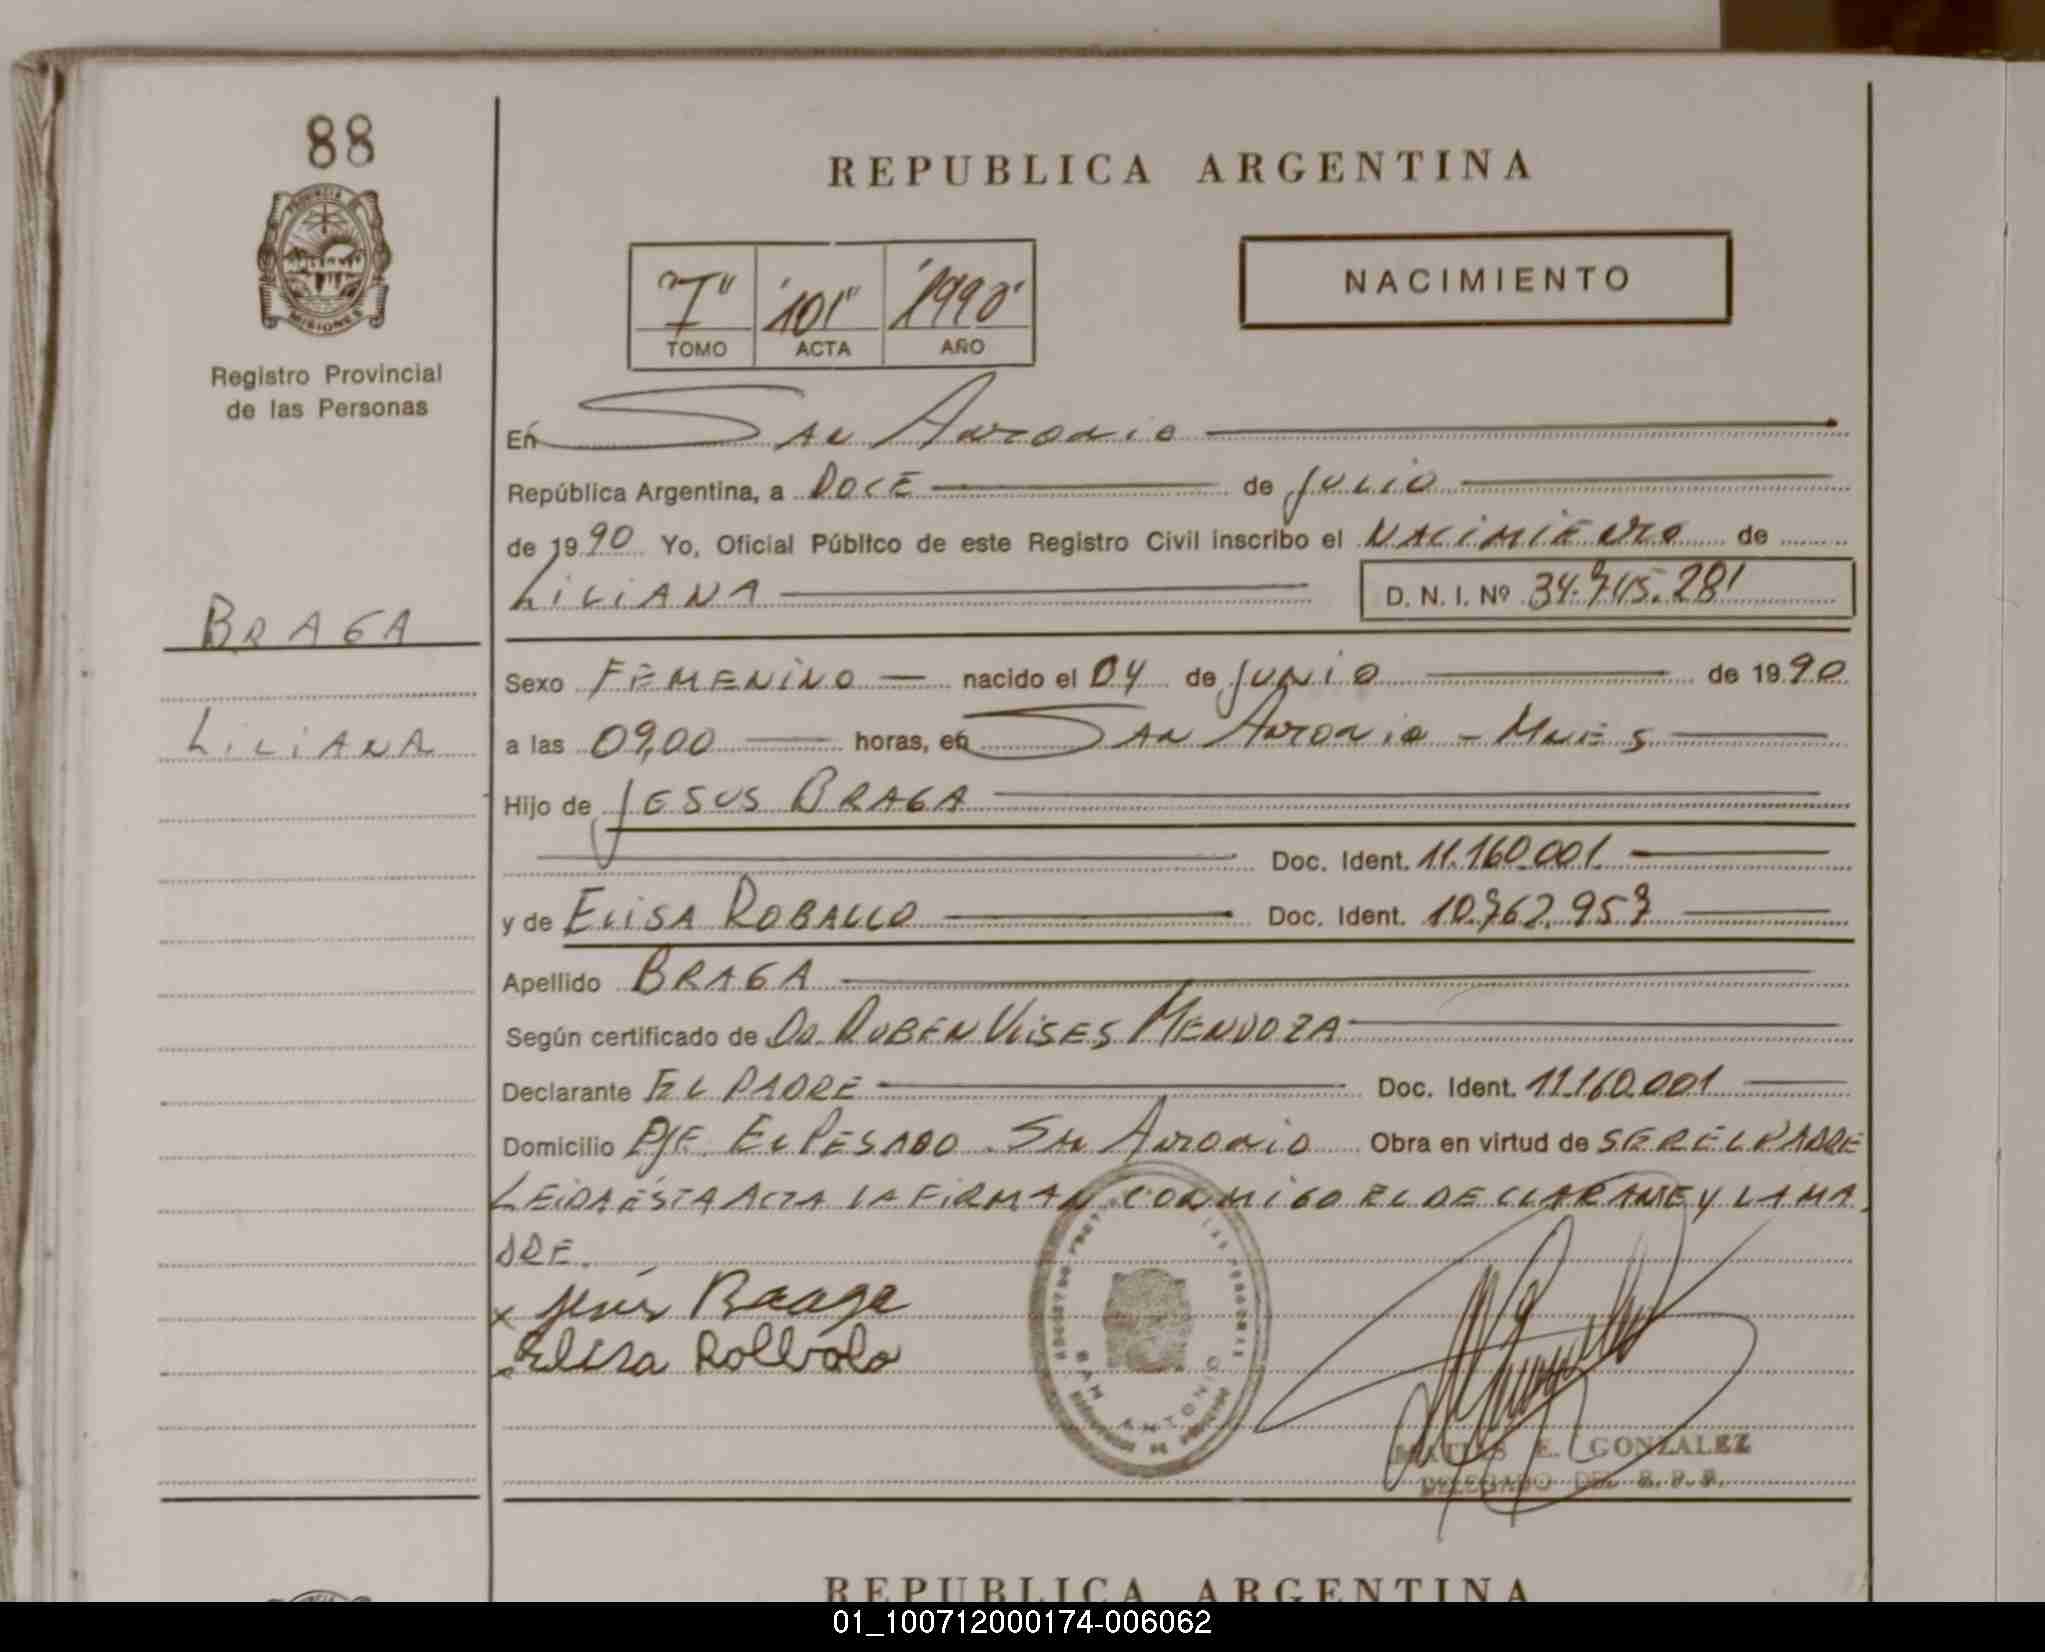 88
PROVINCIA DE
MISIONES
Registro Provincial
de las Personas
BRAGA
LILIANA
REPUBLICA ARGENTINA
"I" "101" "1990"
TOMO ACTA AÑO
NACIMIENTO
En San Antonio
República Argentina, a DOCE de Julio
de 1990 Yo, Oficial Público de este Registro Civil inscribo el NACIMIENTO de
LILIANA D. N. I. Nº 34.715.281
Sexo FEMENINO nacido el 04 de JUNIO de 1990
a las 09,00 horas, en San Antonio - Mnes
Hijo de JESUS BRAGA
Doc. Ident. 11.160.001
y de ELISA ROBALLO Doc. Ident. 10.762.957
Apellido BRAGA
Según certificado de DR. RUBEN ULISES MENDOZA
Declarante EL PADRE Doc. Ident. 11.160.001
Domicilio PJE. EL PESADO - SAN ANTONIO Obra en virtud de SER EL PADRE
LEIDA ESTA ACTA LA FIRMAN CONMIGO EL DECLARANTE Y LA MA-
DRE.
x Jesús Braaga
x Elisa Rolbalo
SAN ANTONIO
MATIAS E. GONZALEZ
DELEGADO DEL R. P. P.
REPUBLICA ARGENTINA
01_100712000174-006062